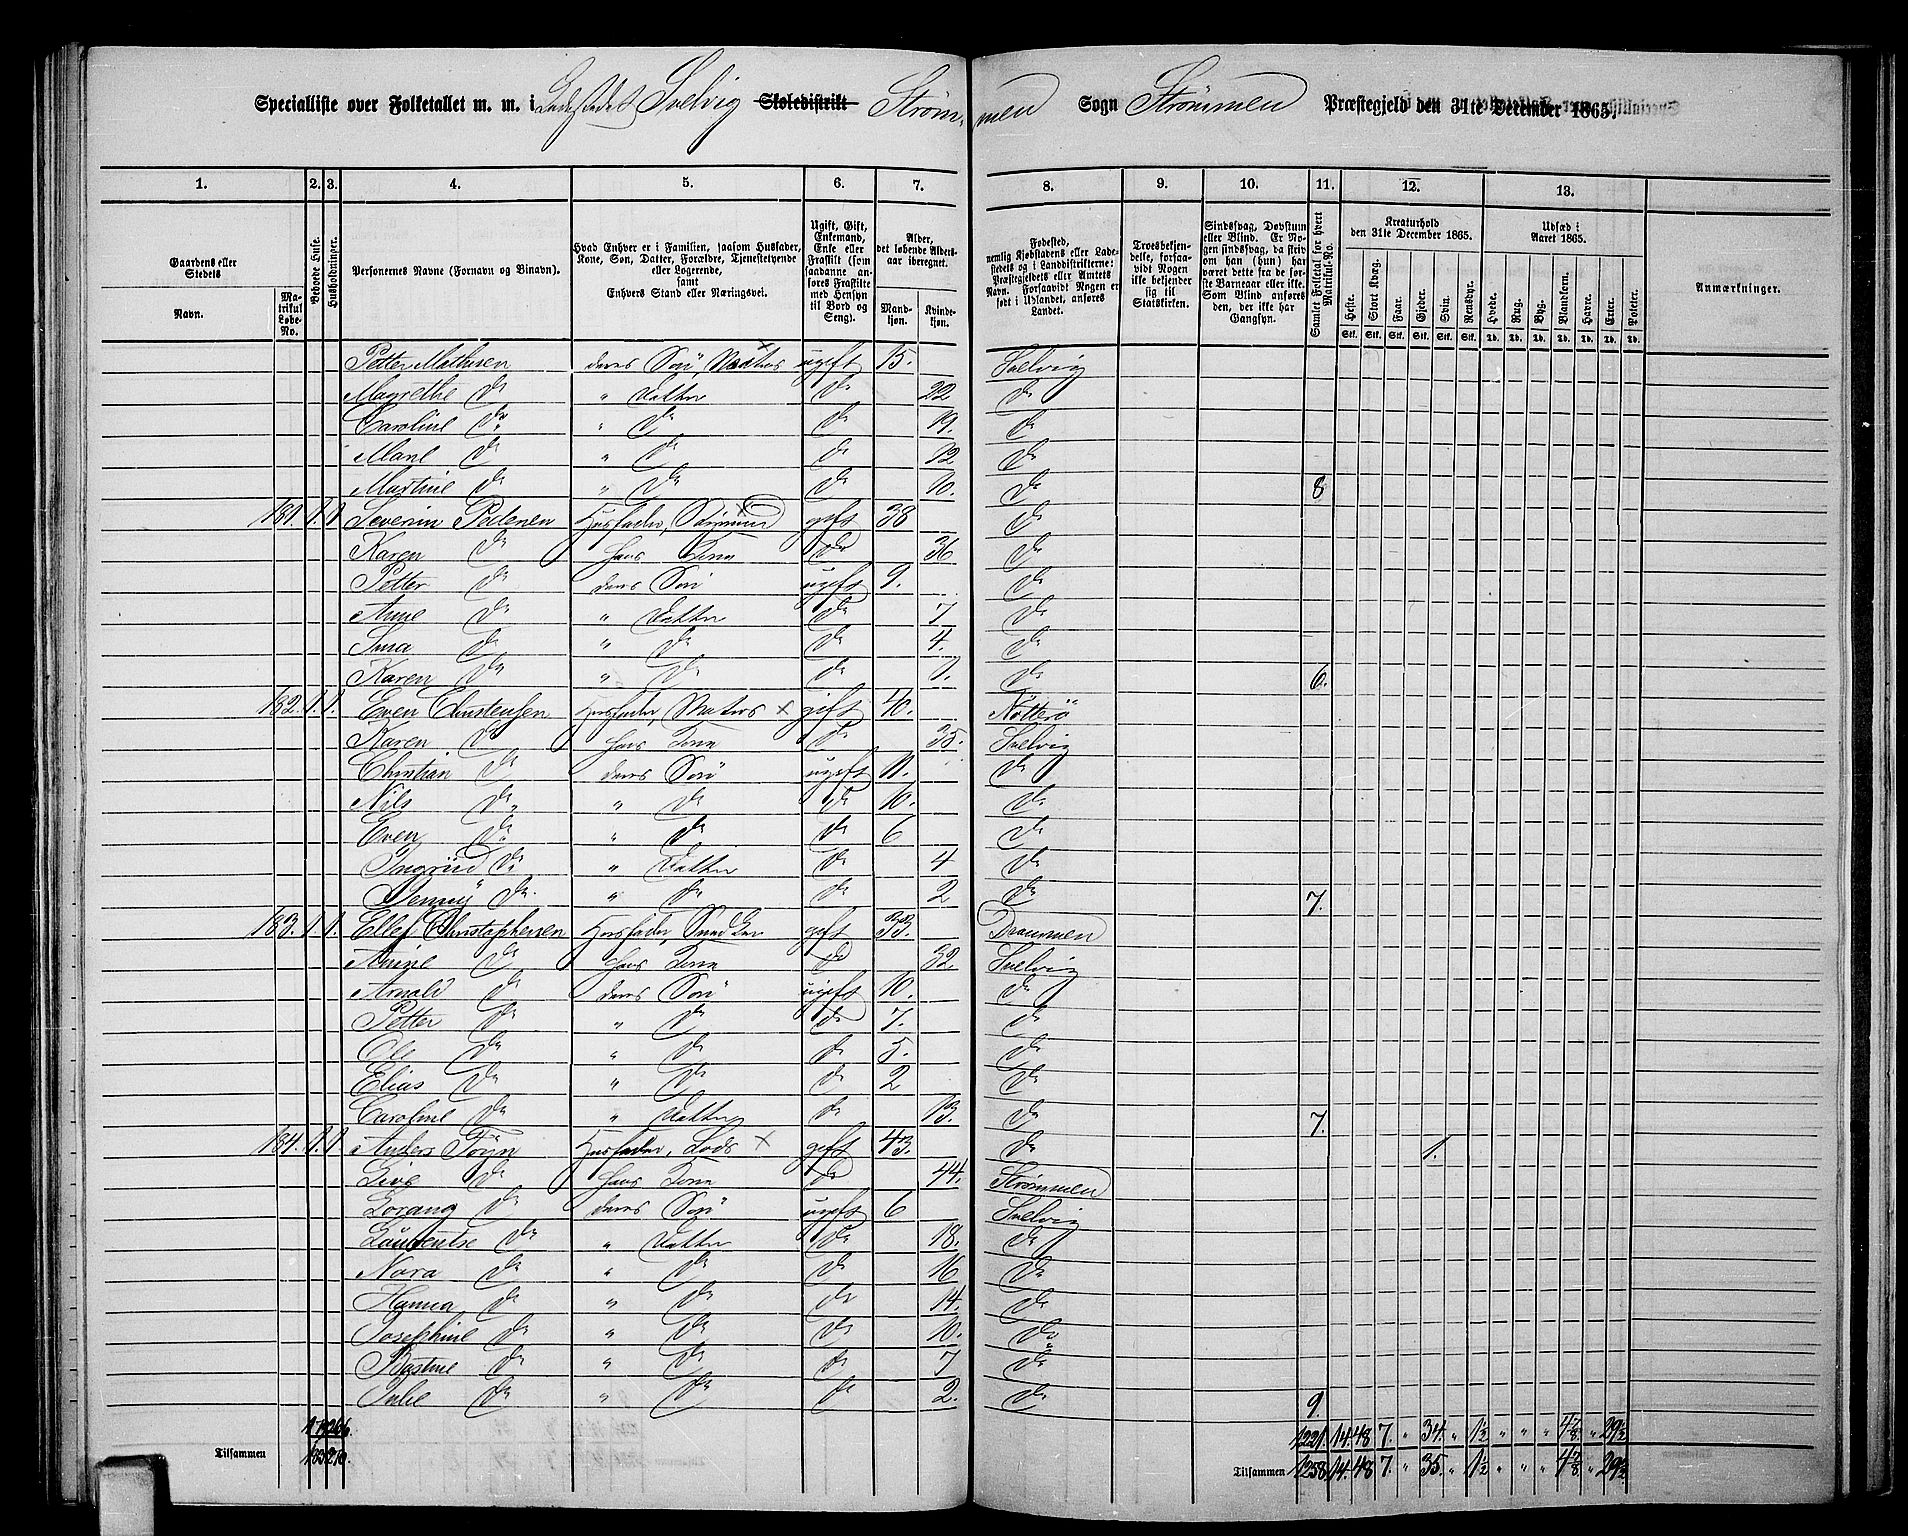 Specialliste over Folketallet m. m. i Ladestedet Svelvig Skoledistrikt Strøm-
men Sogn Strømmen Præstegjeld den 31te December 1865.
1. 2. 3. 4. 5. 6. 7. 8. 9. 10. 11. 12. 13.
Gaardens eller Stedets
Navn. Matrikul Løbe-No.
Beboede Huse.
Husholdninger.
Personernes Navne (Fornavn og Binavn).
Hvad Enhver er i Familien, saasom Husfader, Kone, Søn, Datter, Forældre, Tjenestetyende eller Logerende, samt Enhvers Stand eller Næringsvei.
Ugift, Gift, Enkemand, Enke eller Fraskilt (som saadanne anføres Fraskilte med Hensyn til Bord og Seng).
Alder, det løbende Alders-aar iberegnet.
Mandkjøn. Kvindekjøn.
Fødested, nemlig Kjøbstadens eller Ladestedets og i Landdistrikterne: Præstegjeldets eller Amtets Navn. Forsaavidt Nogen er født i Udlandet, anføres Landet.
Troesbekjendelse, forsaavidt Nogen ikke bekjender sig til Statskirken.
Sindssvag, Døvstum eller Blind. Er Nogen sindssvag, da skrives om han (hun) har været dette fra de første Barneaar eller ikke. Som Blind anføres den, der ikke har Gangsyn.
Samlet Folketal for hvert Matrikul-No.
Kreaturhold den 31te December 1865.
Heste. Stort Kvæg. Faar. Gjeder. Svin. Rensdyr.
Udsæd i Aaret 1865.
Hvede. Rug. Byg. Blandkorn. Havre. Erter. Poteter.
Anmærkninger.
Petter Mathisen deres Søn, Matros ugift 15. Svelvig
Magrethe do " Datter do 22 do
Caroline do " do do 19. do
Marie do " do do 12 do
Mastine do " do do 10. do 8
181. 1. 1 Severin Pedersen Husfader, gift 38 do
Karen do hans Kone do 36 do
Petter do deres Søn ugift 9. do
Anne do " Datter do 7 do
do " do do 4. do
Karen do " do do 1. do 6.
182. 1. 1. Even Christensen Husfader, Matros gift 40. Nötterö
Karen do hans Kone do 35. Svelvig
Christian do deres Søn ugift 11. do
Nils do " do do 10. do
Even do " do do 6 do
Ingrid do " Datter do 4 do
do " do do 2 do 7.
183. 1. 1. Ellef Christophersen Husfader, gift 33. Drammen
Anine do hans Kone do 32 Svelvig
Arnold do deres Søn ugift 10. do
Petter do " do do 7. do
Ole do " do do 5. do
Elias do " do do 2 do
Caroline do " Datter do 13. do 7.
184. 1. 1. Anders Husfader, Lods gift 43. do 1.
Live do hans Kone do 44. Strømmen
Lorang do deres Søn ugift 6 Svelvig
Laurentse do " Datter do 18. do
Nora do " do do 16 do
Hanna do " do do 14. do
Josephine do " do do 10. do
Bastine do " do do 7 do
Julie do " do do 2. do 9.
179 266. 1221. 14. 48 7. " 34. " 1½ " " " 4⅞ " 29½
Tilsammen 183 270. Tilsammen 1258 14. 48 7. " 35. " 1½ " " " 4⅞ " 29½